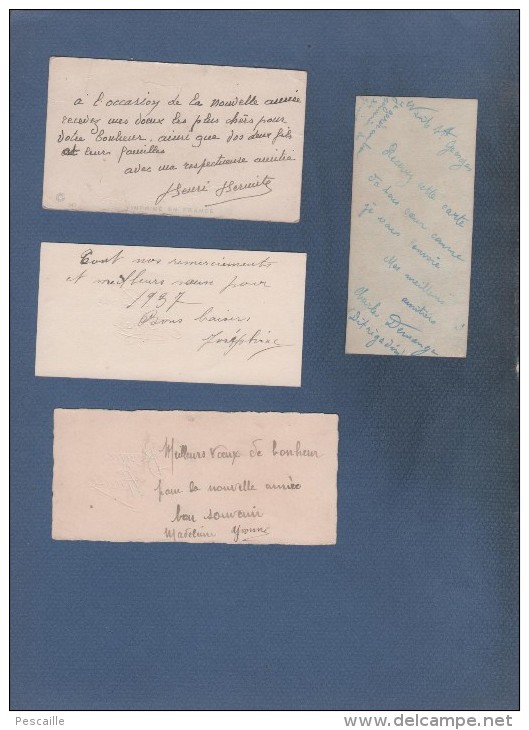 à l'occasion de la nouvelle année
recevez mes vœux les plus chers pour
votre bonheur, ainsi que vos deux fils
et leurs familles
avec ma respectueuse amitié
Henri Hermite
FRANCE
Tout nos remerciements
et meilleurs vœux pour
1937
Bons baisers
Joséphine
Meilleurs vœux de bonheur
pour la nouvelle année
bon souvenir
Madeleine Yvonne
Georges
Recevez cette carte
de bon cœur comme
je vous l'envoie
Mes meilleures
amitiés
Charles Demange
Pescaille
delcampe.net